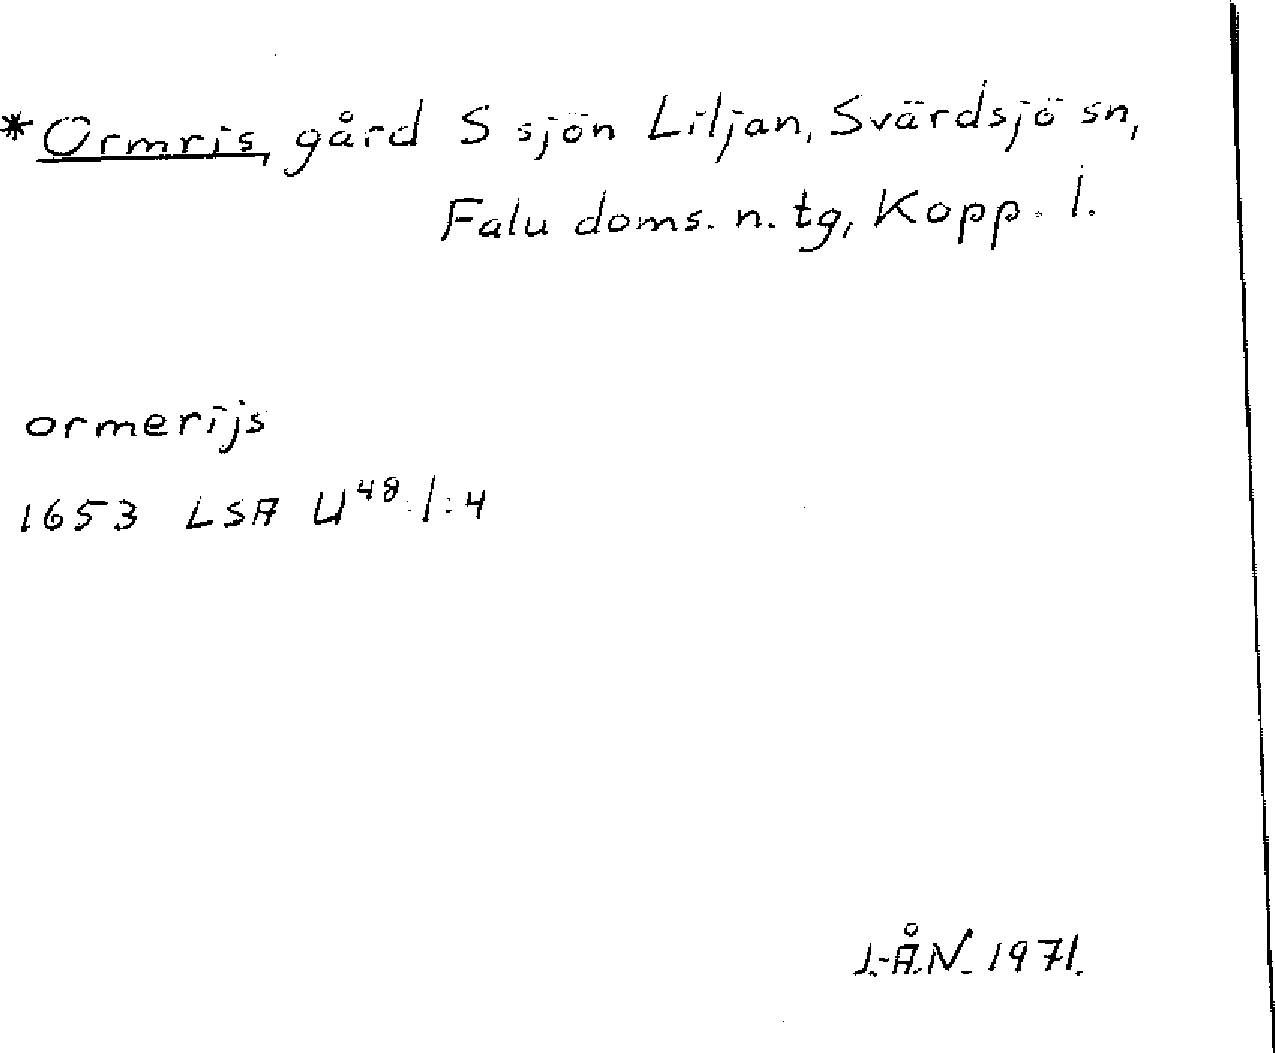 *Ormris, gård S sjön Liljan, Svärdsjö sn,
Falu doms. n. tg, Kopp. l.
ormerijs
1653 LSA U⁴⁸ 1:4
J.-Å.N. 1971.